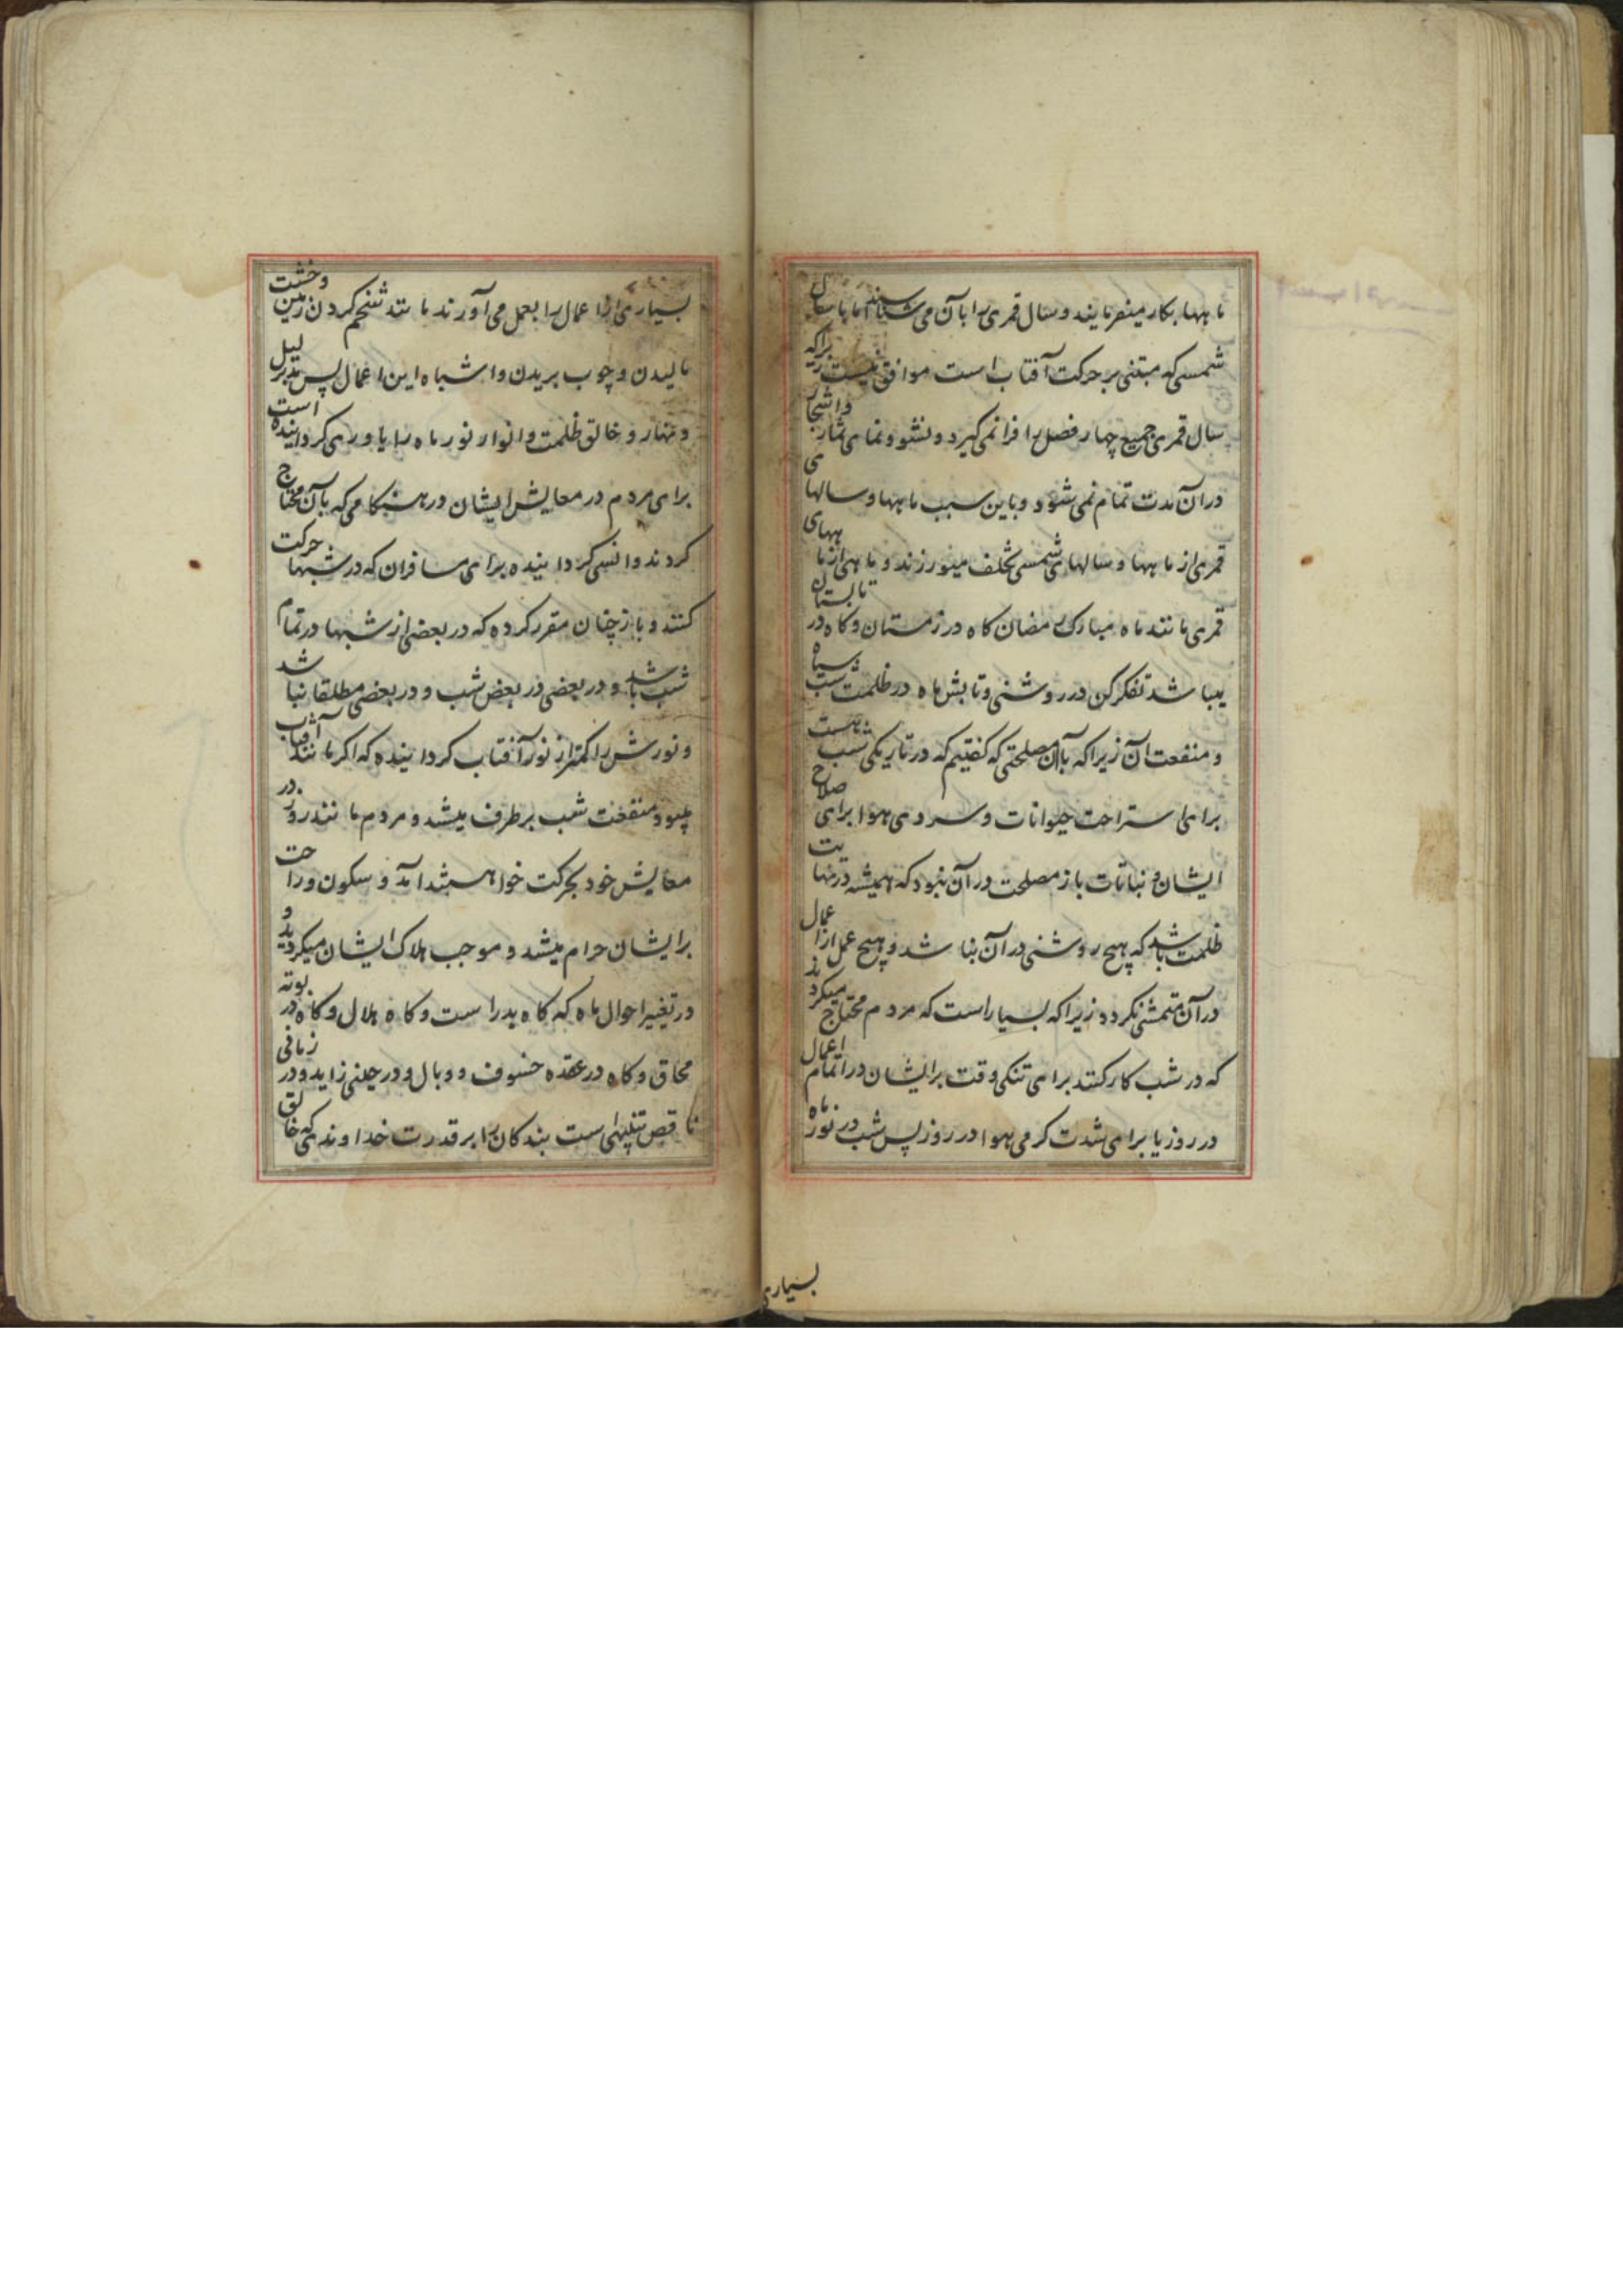 ماهها بکار میفرمایند و سال قمری را بآن می شناسند اما با سال
شمسی که مبتنی بر حرکت آفتاب است موافق نیست زیراکه
سال قمری جمیع چهار فصل را فرا نمی گیرد و نشو و نمای ثمار و اشجار
در آن مدت تمام نمی شود و باین سبب ماهها و سالهای
قمری از ماهها و سالهای شمسی تخلف میورزند و ماهی از ماههای
قمری مانند ماه مبارک رمضان کاه در زمستان و کاه در تابستان
میباشد تفکر کن در روشنی و تابش ماه در ظلمت شب سیاه
و منفعت آن زیراکه باآن مصلحتی که کفتیم که در تاریکی شب هست
برای استراحت حیوانات و سردی هوا برای صلاح
ایشان و نباتات باز مصلحت در آن نبود که همیشه در نهایت
ظلمت باشد که هیچ روشنی در آن نباشد و هیچ عمل از اعمال
در آن متمشی نکردد زیراکه بسیار است که مردم محتاج میکردند
که در شب کار کنند برای تنکی وقت برایشان در اتمام اعمال
در روز یا برای شدت کرمی هوا در روز پس شب در نور ماه
بسیاری
بسیاری از اعمال را بعمل می آورند مانند شخم کردن زمین و خشت
مالیدن و چوب بریدن و اشباه این اعمال پس مدبر لیل
و نهار و خالق ظلمت و انوار نور ماه را یاوری کردانیده است
برای مردم در معایش ایشان در هنکامی که بآن محتاج
کردند و انسی کردانیده برای مسافران که در شبها حرکت
کنند و باز چنان مقرر کرده که در بعضی از شبها در تمام
شب باشد و در بعضی در بعض شب و در بعضی مطلقا نباشد
و نورش را کمتر از نور آفتاب کردانیده که اکر مانند آفتاب
میبود منفعت شب برطرف میشد و مردم مانند روز در
معایش خود بحرکت خواهستند آمد و سکون و راحت
برایشان حرام میشد و موجب هلاک ایشان میکردید و
در تغییر احوال ماه که کاه بدر است و کاه هلال و کاه در بوته
محاق و کاه در عقده خسوف و وبال و در حینی زاید و در زمانی
ناقص تنبیهی است بندکان را بر قدرت خداوندی که خالق